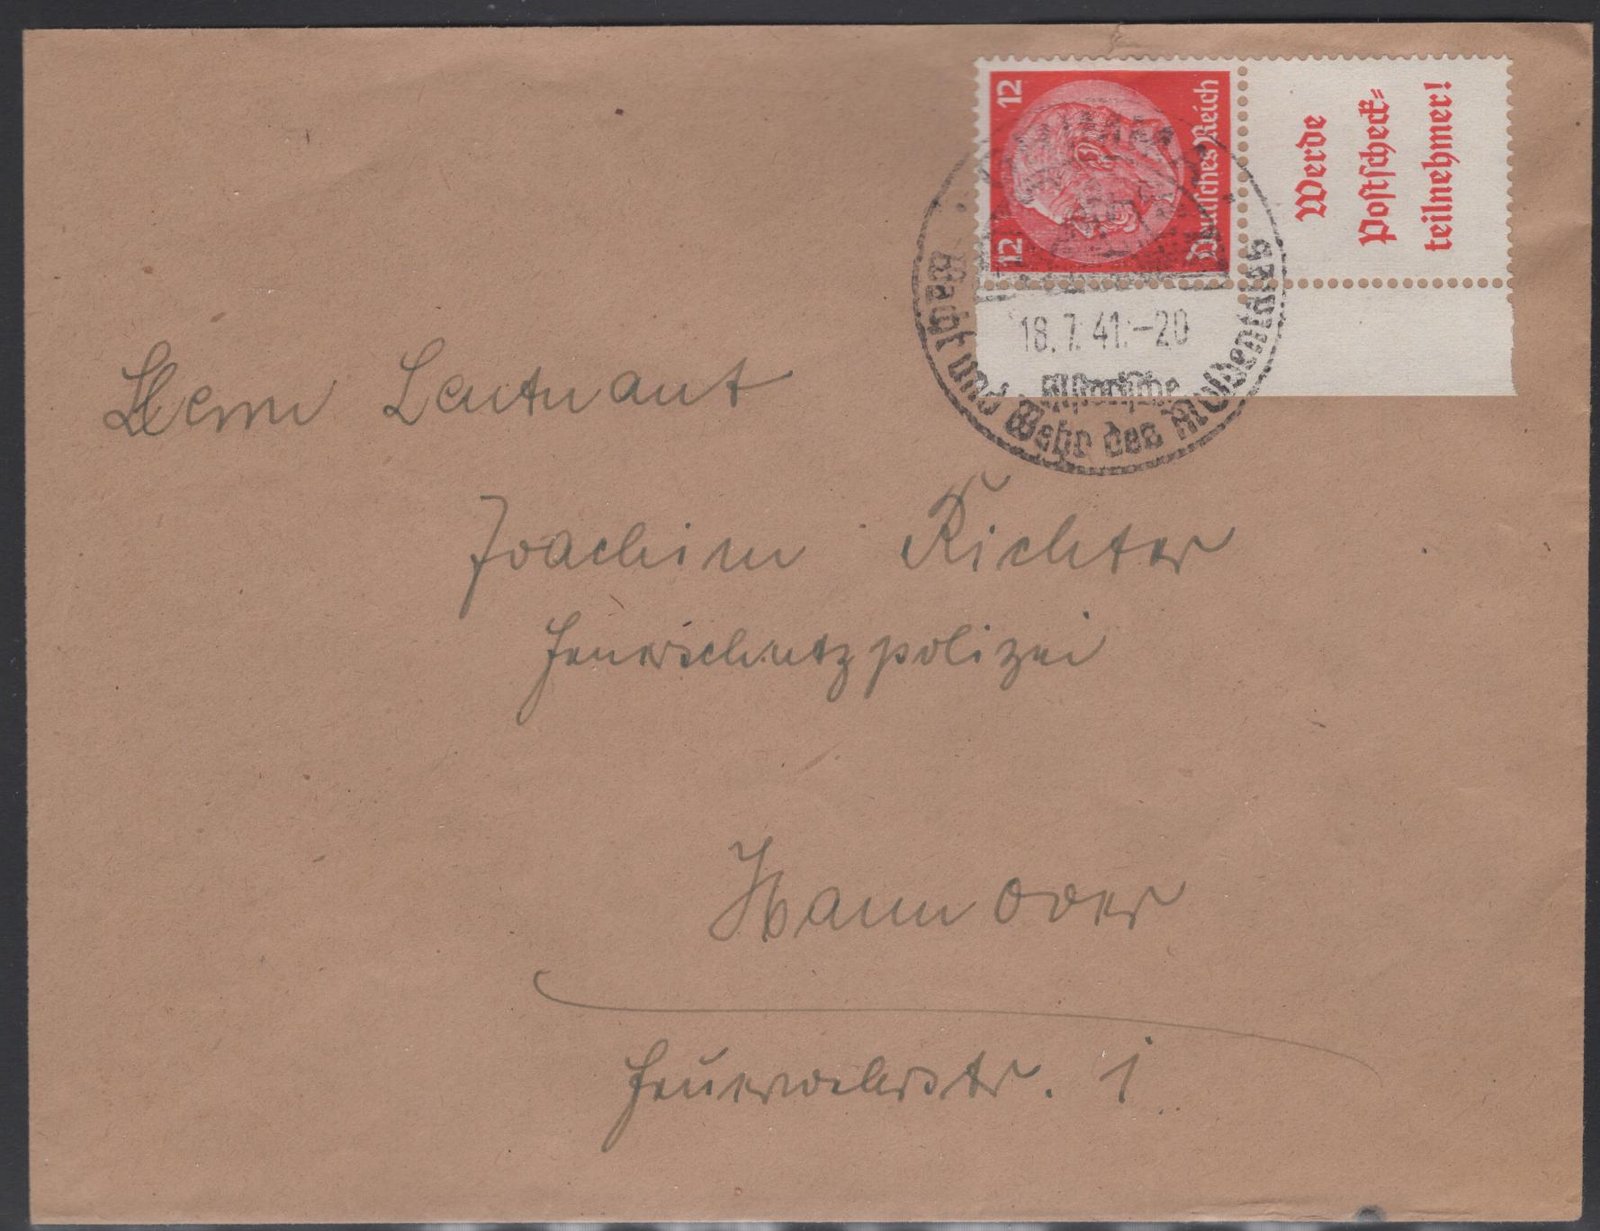 12
12
Deutsches Reich
Werde
Postscheck-
teilnehmer!
18.7.41.-20
Macht und Wehr des Muldentales
Herrn Leutnant
Joachim Richter
Feuerschutzpolizei
Hannover
Feuerwehrstr. 1